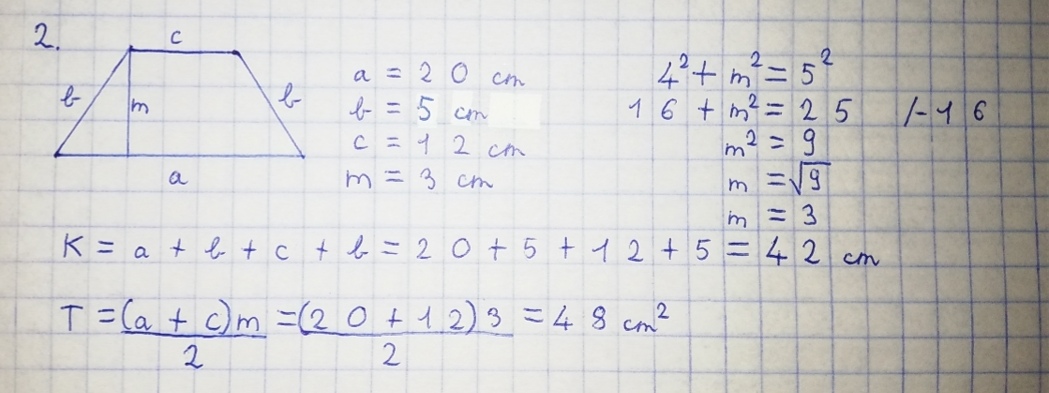 2.
c
b
m
b
a
a = 20 cm
b = 5 cm
c = 12 cm
m = 3 cm
4² + m² = 5²
16 + m² = 25 /-16
m² = 9
m = √9
m = 3
K = a + b + c + b = 20 + 5 + 12 + 5 = 42 cm
T = (a + c)m / 2 = (20 + 12)3 / 2 = 48 cm²